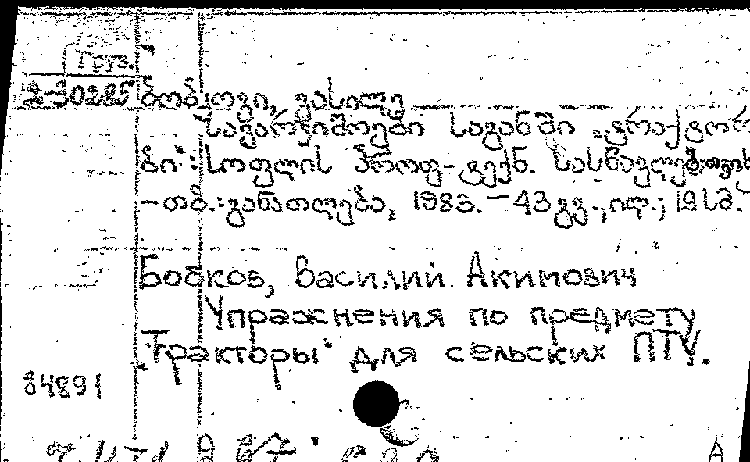 Груз.
2-30285 ბობკოვი, ვასილე
სავარჯიშოები საგანში „ტრაქტორე-
ბი“: სოფლის პროფ-ტექნ. სასწავლებ.თვის
-თბ.: განათლება, 1983. - 43 გვ., ილ.; 19 სმ.
Бобков, Василий Акимович
Упражнения по предмету
„Тракторы“ для сельских ПТУ.
84891